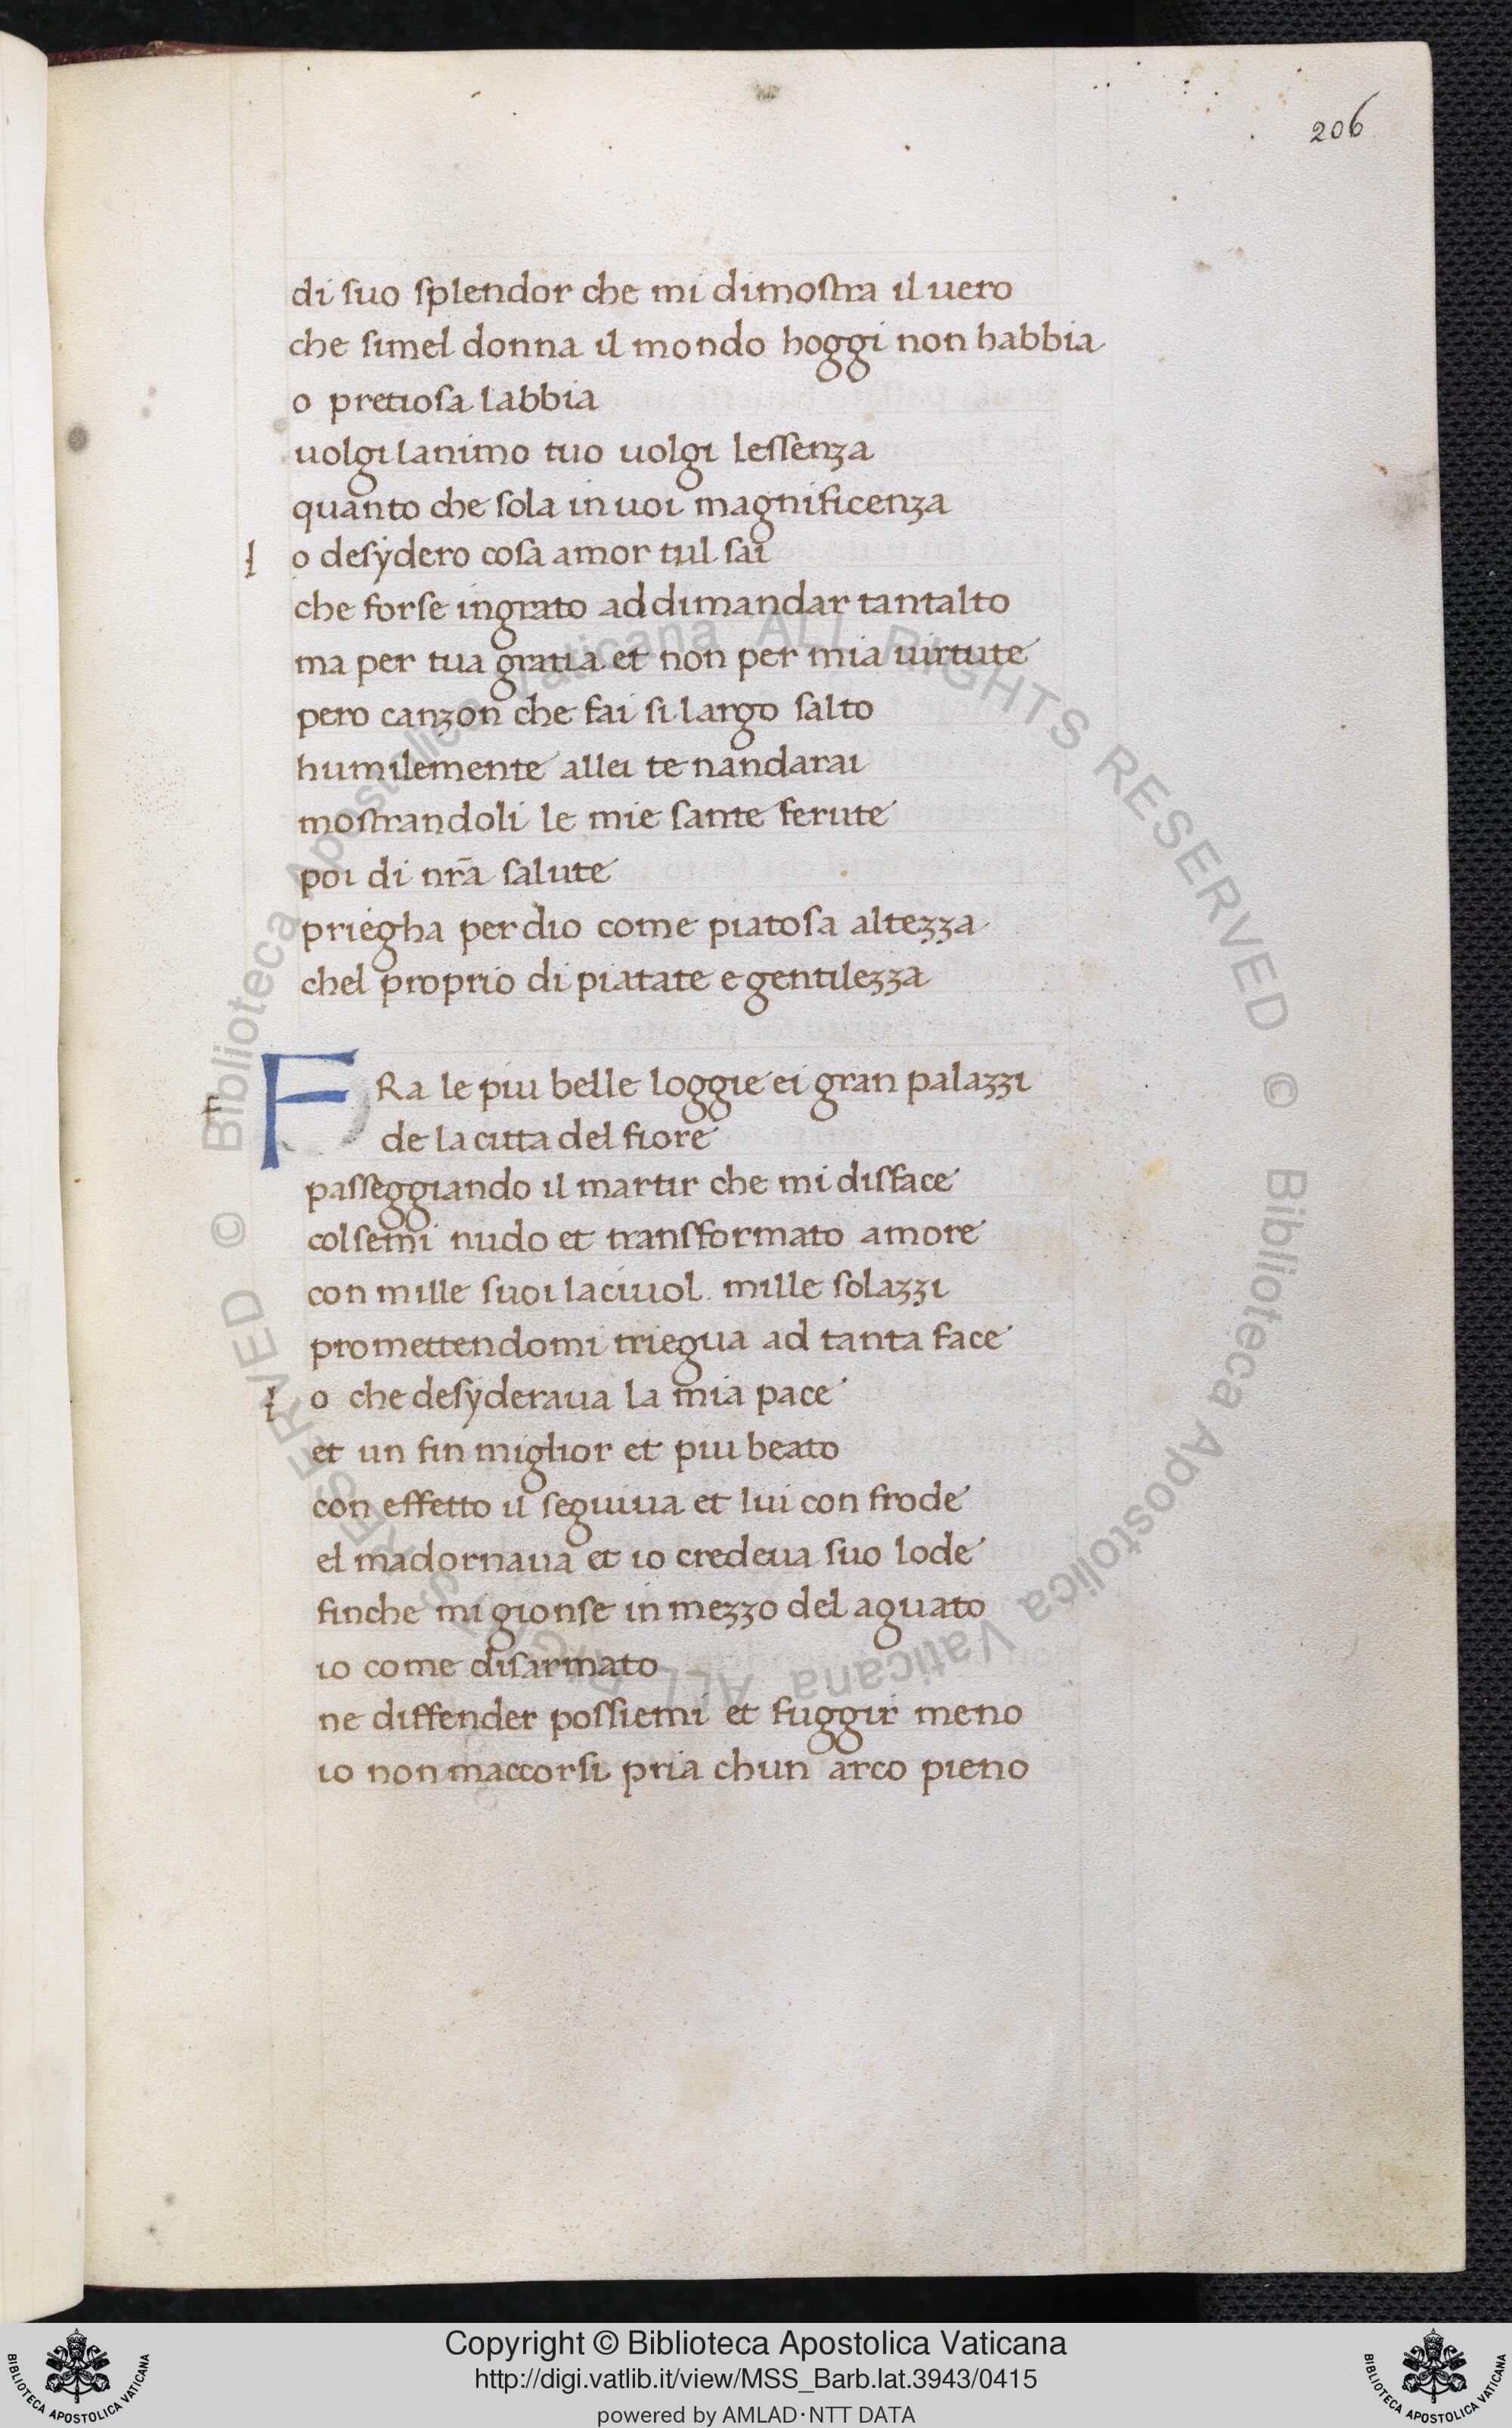 206
di suo splendor che mi dimostra il uero
che simel donna il mondo hoggi non habbia
o pretiosa labbia
uolgi lanimo tuo uolgi lessenza
quanto che sola in uoi magnificenza
I o desydero cosa amor tul sai
che forse ingrato ad dimandar tantalto
ma per tua gratia et non per mia uirtute
pero canzon che fai si largo salto
humilemente allei te nandarai
mostrandoli le mie sante ferute
poi di nr̄a salute
priegha per dio come piatosa altezza
chel proprio di piatate e gentilezza
FRa le piu belle loggie ei gran palazzi
de la citta del fiore
passeggiando il martir che mi disface
colsemi nudo et transformato amore
con mille suoi laciuol. mille solazzi
promettendomi triegua ad tanta face
I o che desyderaua la mia pace
et un fin miglior et piu beato
con effetto il seguiua et lui con frode
el madornaua et io credeua suo lode
finche mi gionse in mezzo del aguato
io come disarmato
ne diffender possiemi et fuggir meno
io non maccorsi pria chun arco pieno
© Biblioteca Apostolica Vaticana ALL RIGHTS RESERVED
© Biblioteca Apostolica Vaticana ALL RIGHTS RESERVED
BIBLIOTECA APOSTOLICA VATICANA
Copyright © Biblioteca Apostolica Vaticana
http://digi.vatlib.it/view/MSS_Barb.lat.3943/0415
powered by AMLAD·NTT DATA
BIBLIOTECA APOSTOLICA VATICANA